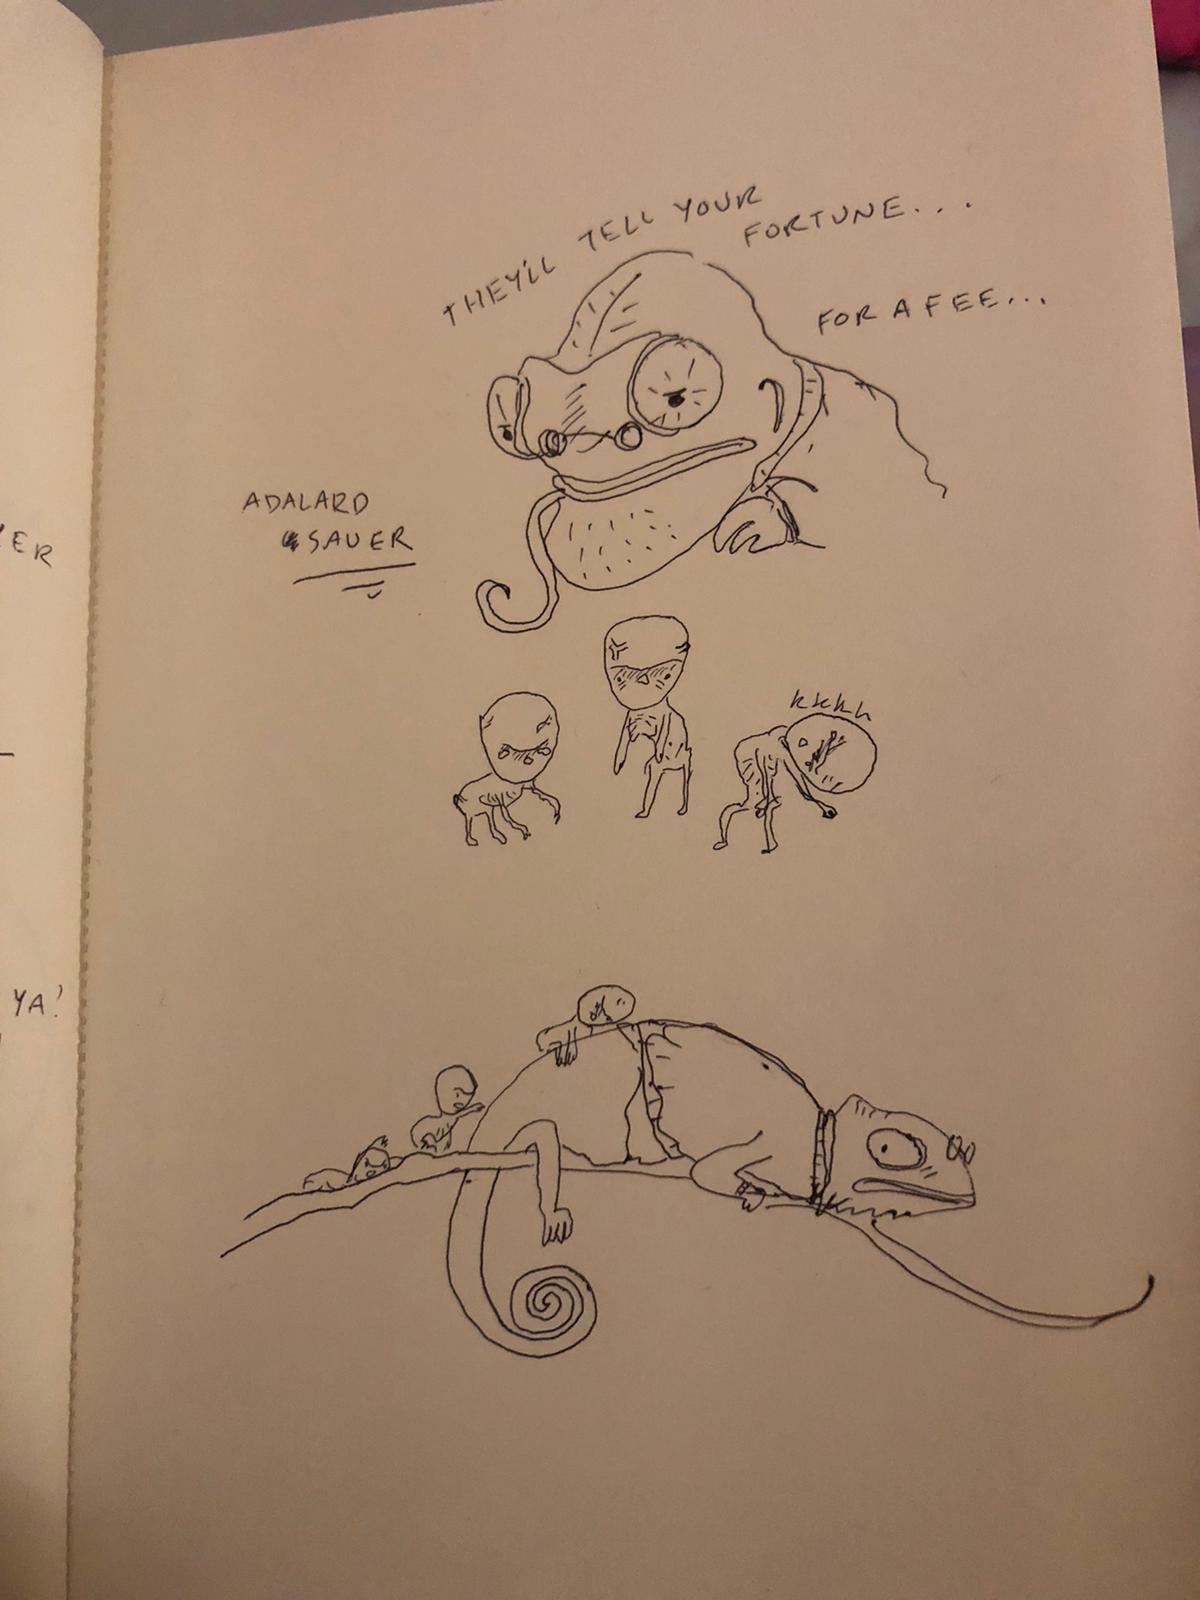 THEY'LL TELL YOUR
FORTUNE...
FOR A FEE...
ADALARD
SAUER
kkkh
ER
YA!